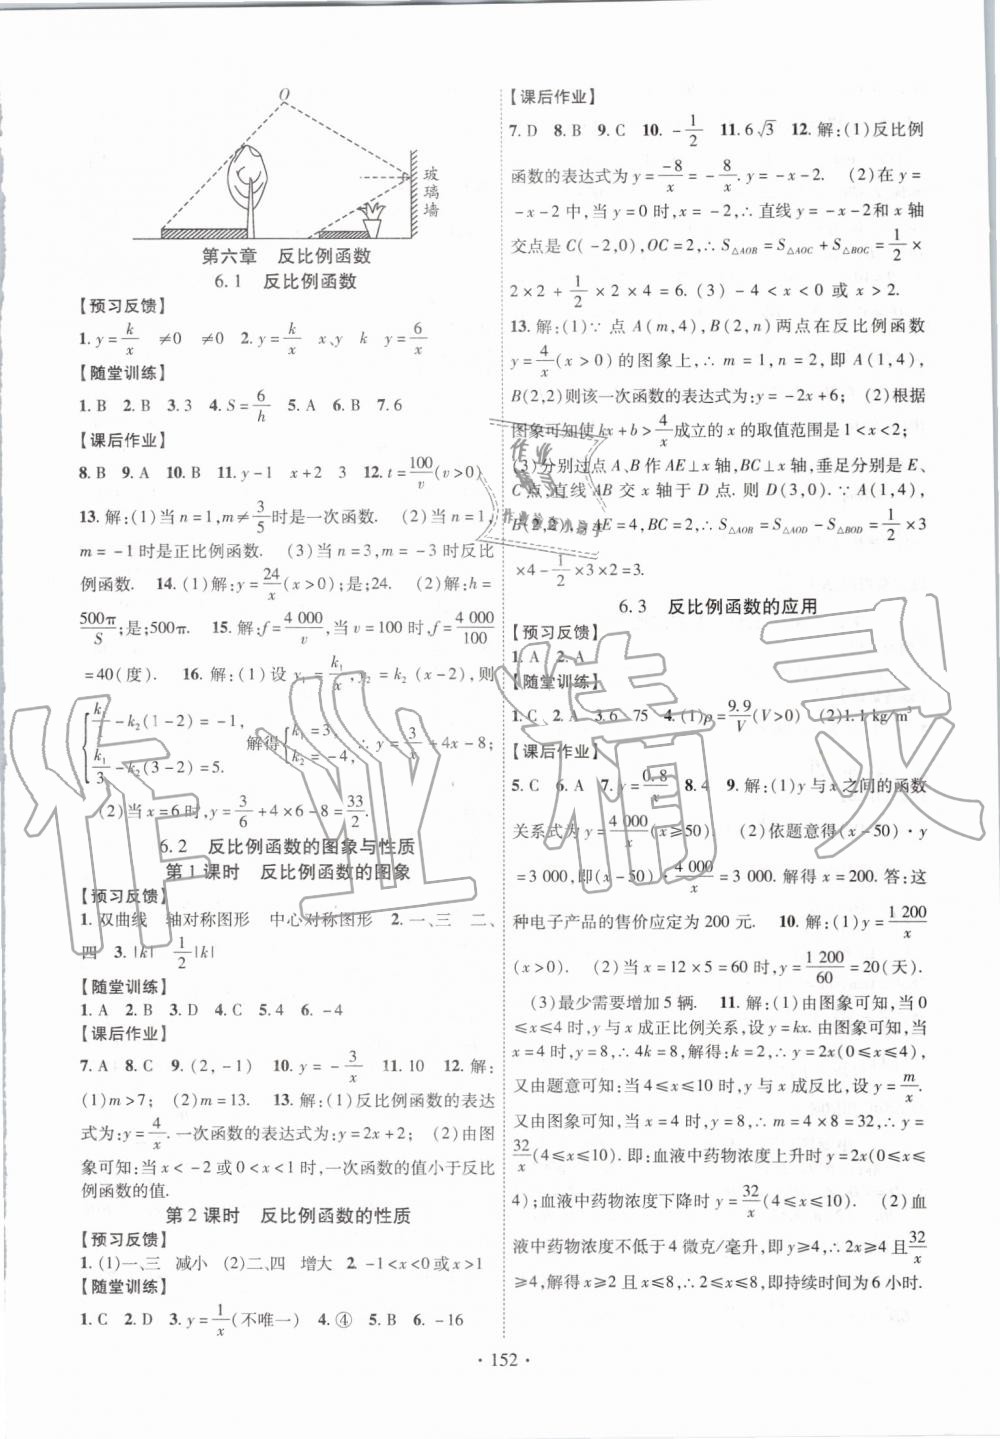 O
玻
璃
墙
第六章 反比例函数
6.1 反比例函数
【预习反馈】
1. y=k/x ≠0 ≠0 2. y=k/x x、y k y=6/x
【随堂训练】
1. B 2. B 3. 3 4. S=6/h 5. A 6. B 7. 6
【课后作业】
8. B 9. A 10. B 11. y-1 x+2 3 12. t=100/v(v>0)
13. 解:(1)当 n=1,m≠3/5时是一次函数. (2)当 n=1,
m=-1时是正比例函数. (3)当 n=3,m=-3时反比
例函数. 14. (1)解:y=24/x(x>0);是;24. (2)解:h=
500π/S;是;500π. 15. 解:f=4 000/v,当 v=100时,f=4 000/100
=40(度). 16. 解:(1)设 y₁=k₁/x,y₂=k₂(x-2),则
{k₁/1-k₂(1-2)=-1, k₁/3-k₂(3-2)=5. 解得{k₁=3, k₂=-4, ∴y=3/x+4x-8;
(2)当 x=6时,y=3/6+4×6-8=33/2.
6.2 反比例函数的图象与性质
第1课时 反比例函数的图象
【预习反馈】
1. 双曲线 轴对称图形 中心对称图形 2. 一、三 二、
四 3. |k| 1/2|k|
【随堂训练】
1. A 2. B 3. D 4. C 5. 4 6. -4
【课后作业】
7. A 8. C 9. (2,-1) 10. y=-3/x 11. 10 12. 解:
(1)m>7; (2)m=13. 13. 解:(1)反比例函数的表达
式为:y=4/x.一次函数的表达式为:y=2x+2; (2)由图
象可知:当 x<-2或0<x<1时,一次函数的值小于反比
例函数的值.
第2课时 反比例函数的性质
【预习反馈】
1. (1)一、三 减小 (2)二、四 增大 2. -1<x<0或x>1
【随堂训练】
1. C 2. D 3. y=1/x(不唯一) 4. ④ 5. B 6. -16
【课后作业】
7. D 8. B 9. C 10. -1/2 11. 6√3 12. 解:(1)反比例
函数的表达式为 y=-8/x=-8/x. y=-x-2. (2)在 y=
-x-2中,当 y=0时,x=-2,∴直线 y=-x-2和 x 轴
交点是 C(-2,0),OC=2,∴S△AOB=S△AOC+S△BOC=1/2×
2×2+1/2×2×4=6. (3)-4<x<0 或 x>2.
13. 解:(1)∵点 A(m,4),B(2,n)两点在反比例函数
y=4/x(x>0)的图象上,∴m=1,n=2,即 A(1,4),
B(2,2)则该一次函数的表达式为:y=-2x+6; (2)根据
图象可知使 kx+b>4/x成立的 x 的取值范围是 1<x<2;
(3)分别过点 A、B 作 AE⊥x 轴,BC⊥x 轴,垂足分别是 E、
C 点,直线 AB 交 x 轴于 D 点. 则 D(3,0). ∵A(1,4),
B(2,2),∴AE=4,BC=2,∴S△AOB=S△AOD-S△BOD=1/2×3
×4-1/2×3×2=3.
6.3 反比例函数的应用
【预习反馈】
1. A 2. A
【随堂训练】
1. C 2. A 3. 6 75 4. (1)ρ=9.9/V(V>0) (2)1.1 kg/m³
【课后作业】
5. C 6. A 7. y=0.8/x 8. 4 9. 解:(1)y 与 x 之间的函数
关系式为 y=4 000/x(x≥50). (2)依题意得(x-50)·y
=3 000,即(x-50)·4 000/x=3 000. 解得 x=200. 答:这
种电子产品的售价应定为 200 元. 10. 解:(1)y=1 200/x
(x>0). (2)当 x=12×5=60时,y=1 200/60=20(天).
(3)最少需要增加5辆. 11. 解:(1)由图象可知,当0
≤x≤4时,y 与 x 成正比例关系,设 y=kx. 由图象可知,当
x=4时,y=8,∴4k=8,解得:k=2,∴y=2x(0≤x≤4),
又由题意可知:当4≤x≤10时,y 与 x 成反比,设 y=m/x.
又由图象可知:当 x=4时,y=8,∴m=4×8=32,∴y=
32/x(4≤x≤10). 即:血液中药物浓度上升时 y=2x(0≤x≤
4);血液中药物浓度下降时 y=32/x(4≤x≤10). (2)血
液中药物浓度不低于4微克/毫升,即:y≥4,∴2x≥4且32/x
≥4,解得 x≥2 且 x≤8,∴2≤x≤8,即持续时间为6小时.
·152·
作业精灵